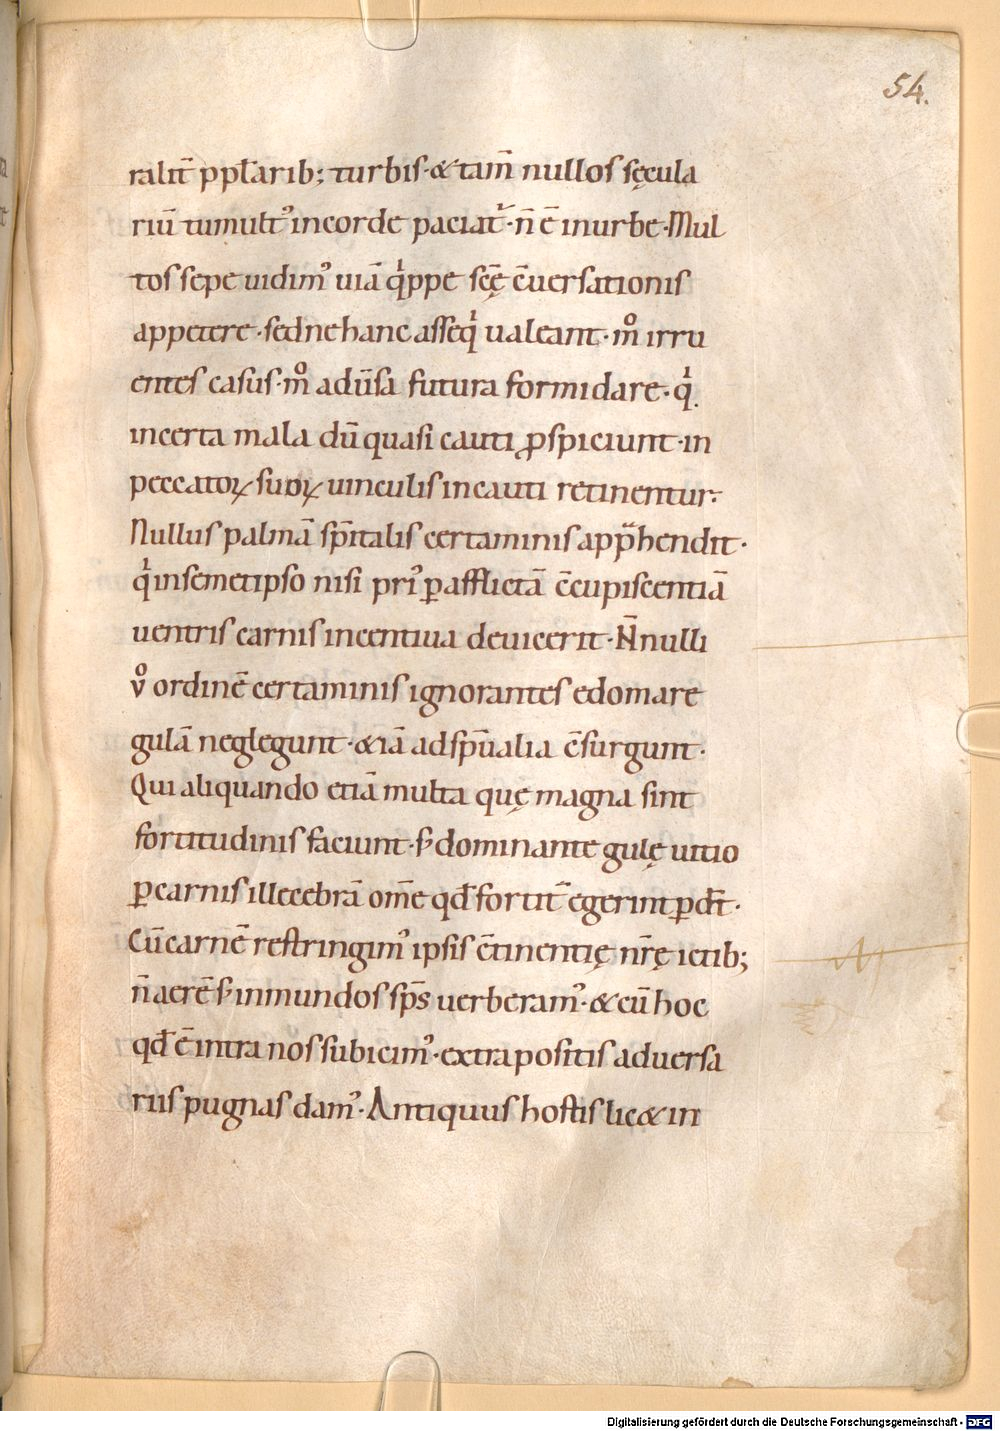 54.
ralit̄ ppłarib; turbis· & tam̄ nullos sęcula
riū tumultꝰ in corde paciat᷒· n̄ ē in urbe· Mul
tos sepe uidimꝰ uiā qͥppe sc̄ę c̄uersationis
appetere· sed ne hanc asseqͥ ualeant· m̊ irru
entes casus· m̊ adūsa futura formidare· qͥ
incerta mala dū quasi cauti ꝓspiciunt· in
peccatoꝝ suoꝝ uinculis incauti retinentur·
Nullus palmā sp̄italis certaminis app̄hendit·
qͥ in semetipso nisi priꝰ ꝑ afflictā c̄cupiscentiā
uentris carnis incentiua deuicerit· N̄nulli
v̊ ordinē certaminis ignorantes edomare
gulā neglegunt· & iā ad sp̄ualia c̄surgunt·
Qui aliquando etiā multa quę magna sint
fortitudinis faciunt· s; dominante gulę uitio
ꝑ carnis illecebrā om̄e qđ fortit̄ egerint ꝑdt̄·
Cū carnē restringimꝰ ipsis c̄tinentię nr̄ę ictib;
n̄ aerē s; inmundos sp̄s uerberamꝰ· & cū hoc
qđ ē intra nos subicimꝰ· extra positis aduersa
riis pugnas damꝰ· Antiquus hostis lic& in
Digitalisierung gefördert durch die Deutsche Forschungsgemeinschaft - DFG